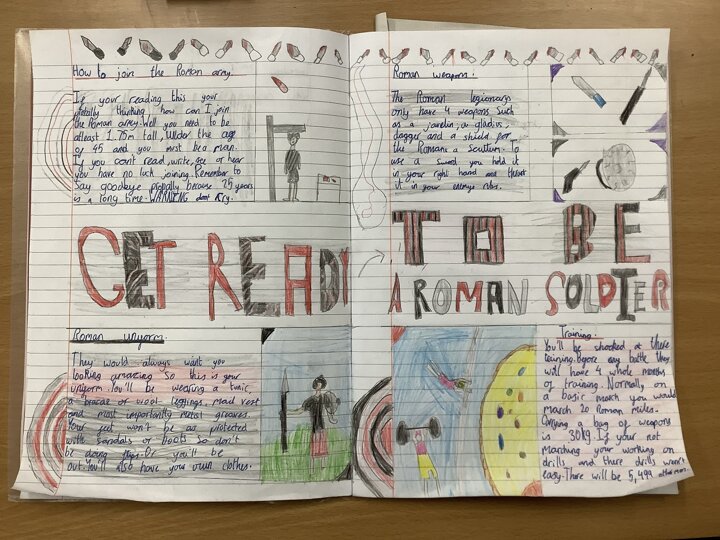 How to join the Roman army.
If your reading this your
totally thinking how can I join
the Roman army. Well you need to be
atleast 1.75m tall under the age
of 45 and you must be a man.
If you can't read, write, see or hear
you have no luck joining. Remember to
say goodbye probally because 25 years
is a long time. WARNING don't cry.
Roman weapons.
The Roman legionarys
only have 4 weapons such
as a javelin, a gladius,
dagger and a shield for
the Romans a Scutium. To
use a sword you hold it
in your right hand and thrust
it in your enemys ribs.
GET READY TO BE
A ROMAN SOLDIER
Roman uniform
They would always want you
looking amazing so this is your
uniform. You'll be wearing a tunic,
a bracae or wool leggings, mail vest
and most importantly metal greaves.
Your feet won't be as protected
with sandals or boots so don't
be doing. Or you'll be
out. You'll also have your own clothes.
Training.
You'll be shocked at there
training. Before any battle they
will have 4 whole months
of training. Normally on
a basic march you would
march 20 Roman miles.
Carrying a bag of weapons
is 30kg. If your not
marching your working on
drills and there drills won't
easy. There will be 5,499 other men.